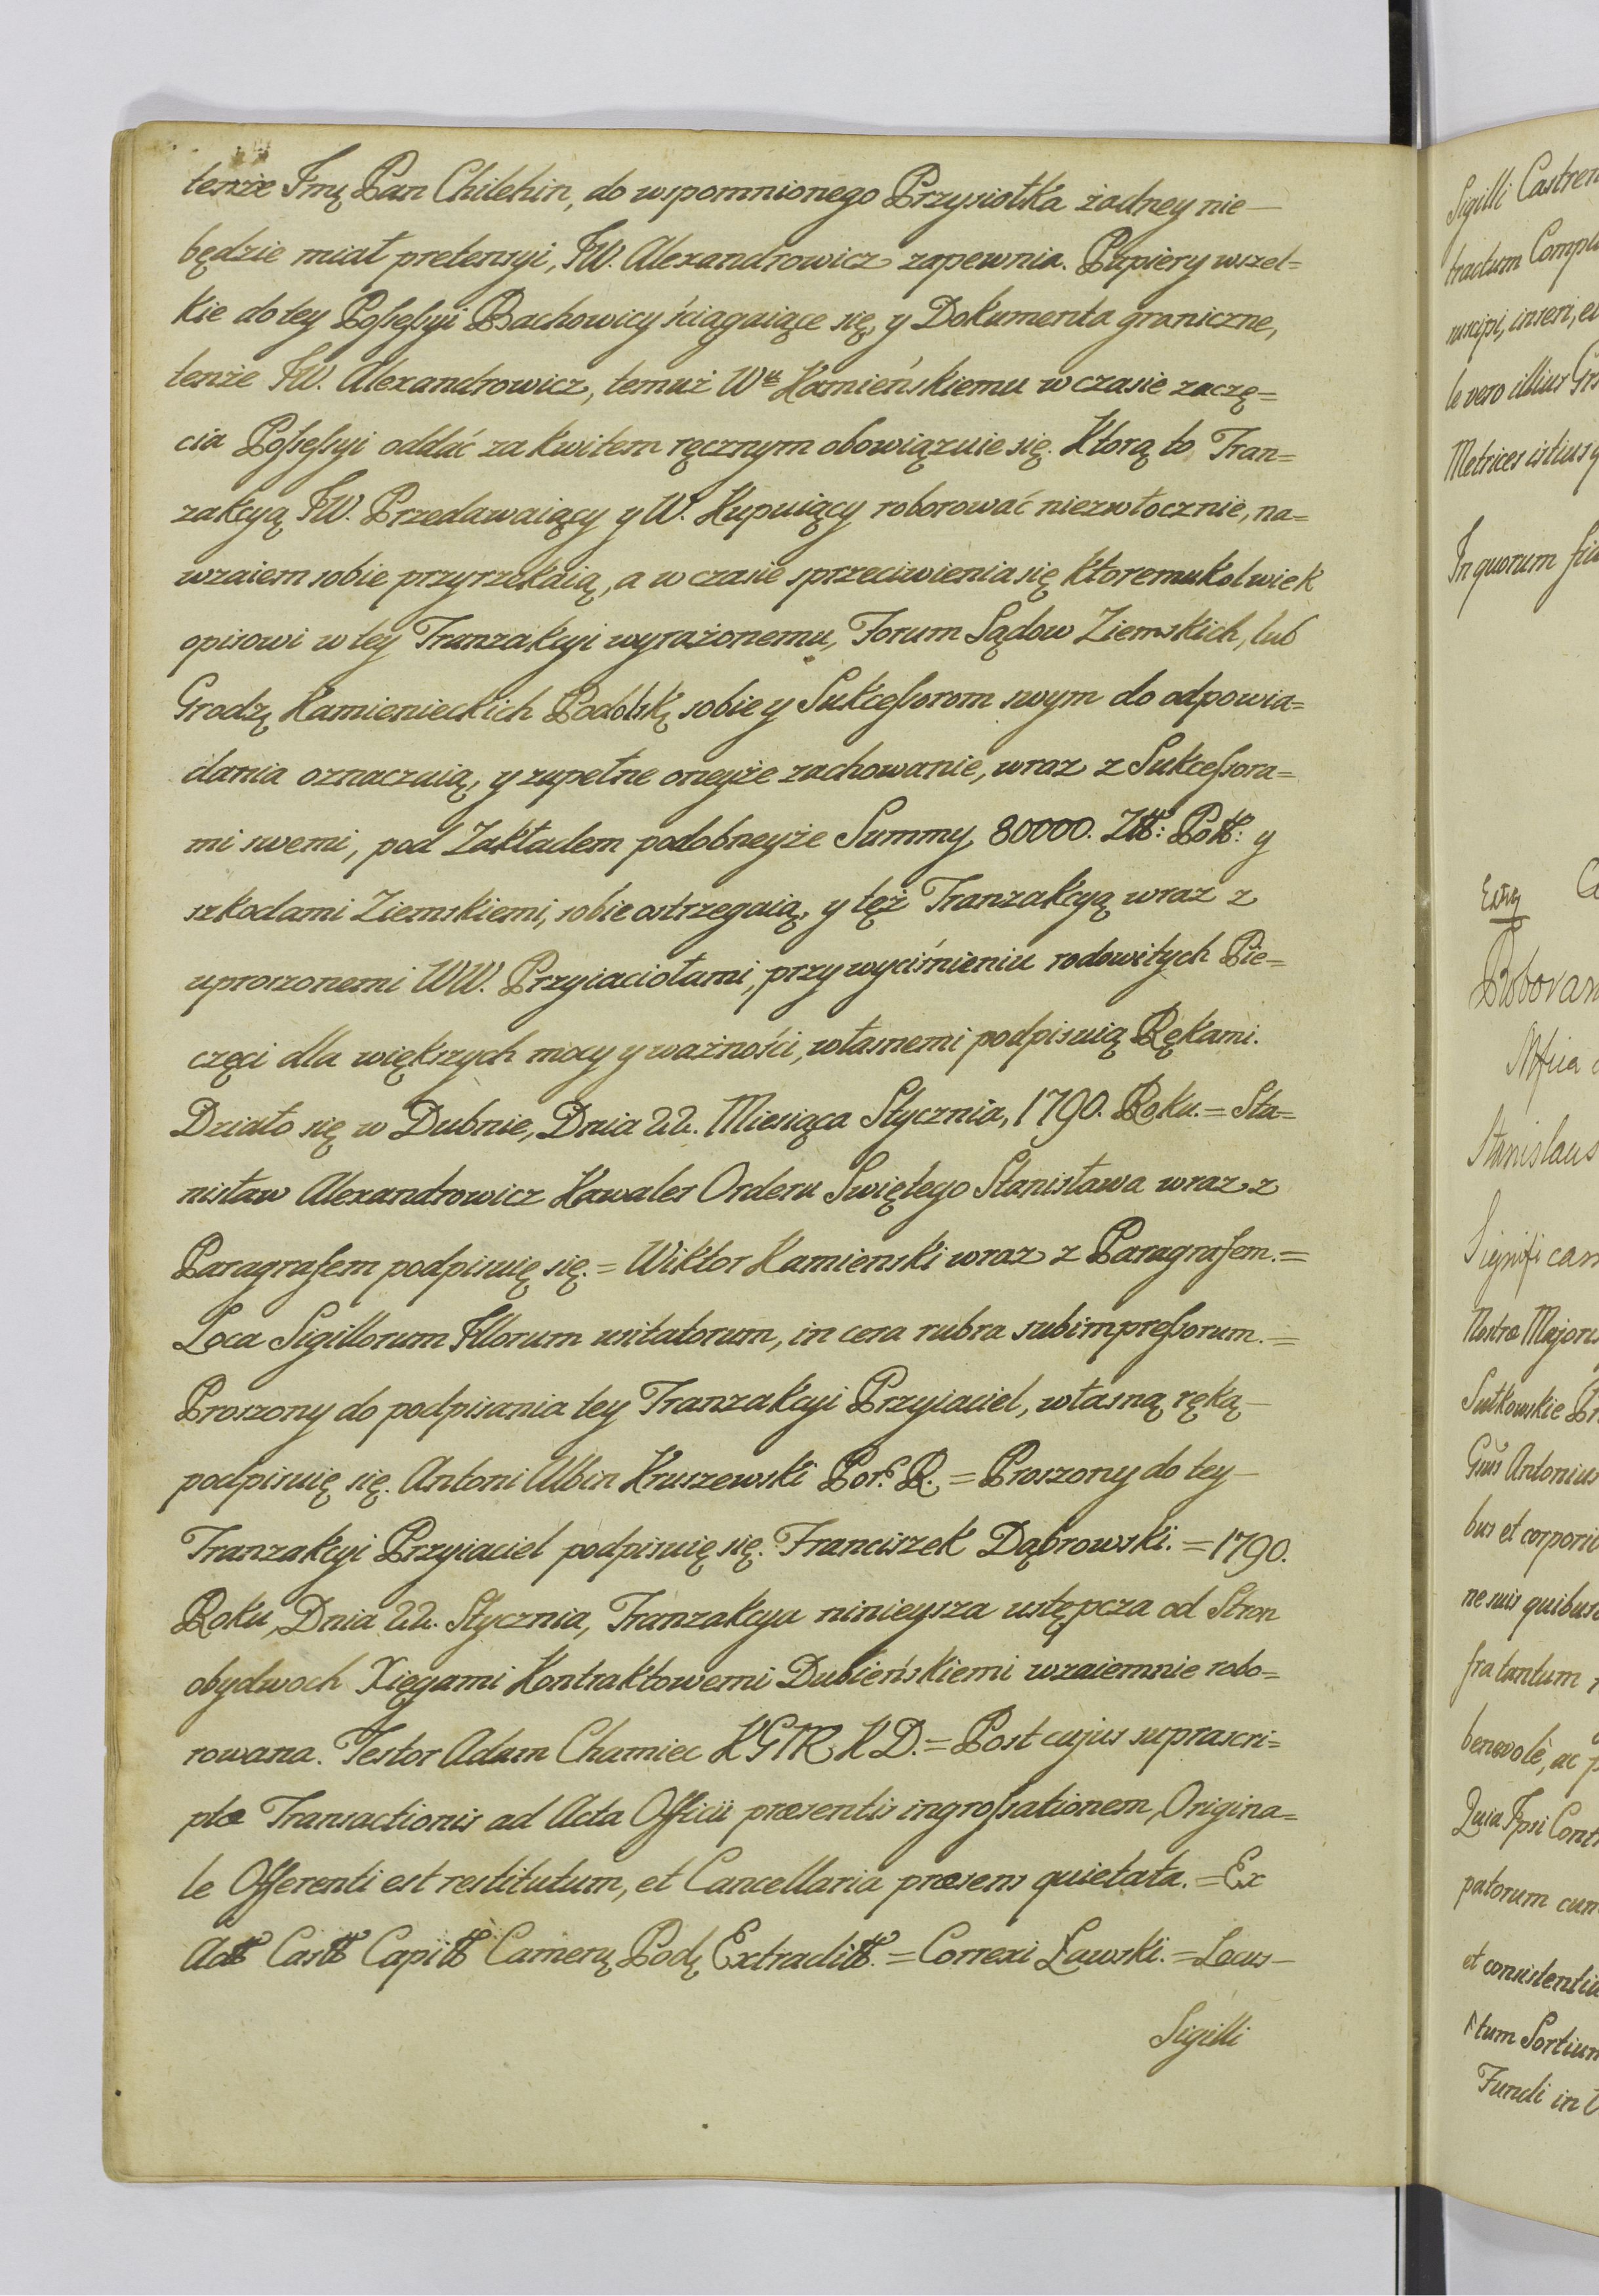 tenże Jmę Pan Chilehin, do wspomnionego Przysiołka żadney nie—
będzie miał pretensyi, JW. Alexandrowicz zapewnia. Papiery wszel=
kie do tey Possessyi Bachowicy ściągaiące się, y Dokumenta graniczne,
tenże JW. Alexandrowicz, temuż Wu Kamieńskiemu w czasie zaczę=
cia Possessyi oddać za kwitem ręcznym obowiązuie się. Ktorą to Tran=
zakcyą JW. Przedawaiący y W. Kupuiący roborować niezwłocznie, na=
wzaiem sobie przyrzekaią, a w czasie sprzeciwienia się ktoremukolwiek
opisowi w tey Tranzakcyi wyrażonemu, Forum Sądow Ziemskich, lub
Grodz Kamienieckich Podolsk sobie y Sukcessorom swym do odpowia=
dania oznaczaią, y zupełne oneyże zachowanie, wraz z Sukcessora=
mi swemi, pod Zakładem podobneyże Summy 80000. Złł: Poll: y
szkodami Ziemskiemi, sobie ostrzegaią, y tęż Tranzakcyą wraz z
uproszonemi WW. Przyiaciołami, przy wyciśnieniu rodowitych Pie=
częci dla większych mocy y ważności, własnemi podpisuią Rękami.
Działo się w Dubnie, Dnia 22. Miesiąca Stycznia, 1790. Roku. = Sta=
nisław Alexandrowicz Kawaler Orderu Swiętego Stanisława wraz z
Paragrafem podpisuię się. = Wiktor Kamienski wraz z Paragrafem. =
Loca Sigillorum Illorum usitatorum, in cera rubra subimpressorum. =
Proszony do podpisania tey Tranzakcyi Przyiaciel, własną ręką—
podpisuię się. Antoni Albin Kruszewski Por. R. = Proszony do tey—
Tranzakcyi Przyiaciel podpisuię się. Franciszek Dąbrowski. = 1790.
Roku, Dnia 22. Stycznia, Tranzakcya ninieysza ustępcza od Stron
obydwoch Xięgami Kontraktowemi Dubieńskiemi wzaiemnie robo=
rowana. Testor Adam Chamiec KGTR KD. = Post cujus suprascri=
ptæ Transactionis ad Acta Officii præsentis ingrossationem, Origina=
le Offerenti est restitutum, et Cancellaria præsens quietata. = Ex
Actt Castt Capitt Camen Pod Extraditt. = Correxi Ławski. = Locus—
Sigilli
Sigilli Castren
tractum Compl
suscipi, inseri, et
le vero illius
Metrices istius
In quorum
Roboran
Stanislaus
Significam
Nostræ Majoris
Sułkowskie
Antonius
bus et corpori
ne suis quibus
fra tantum
benevolè, ac p
Quia Ipsi Cont
patorum cum
et consistentiu
tum Sortium
Fundi in